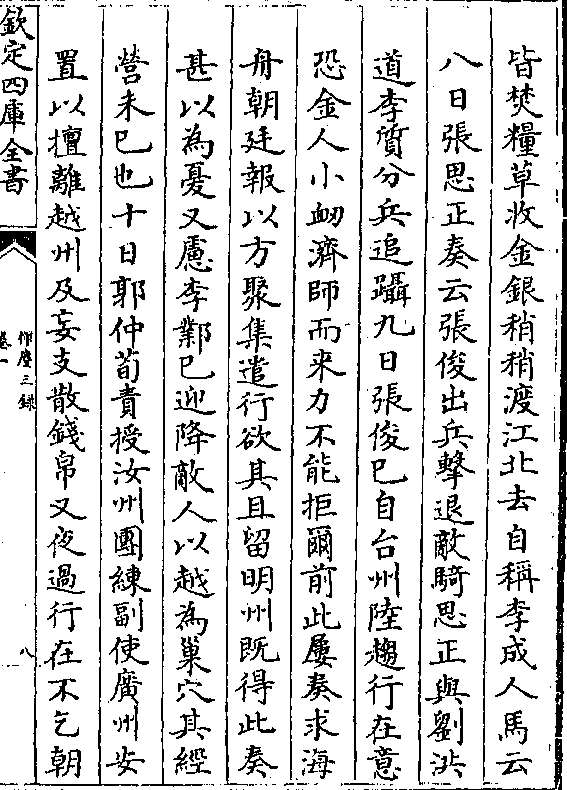 皆焚糧草收金銀稍稍渡江北去自稱李成人馬云
八日張思正奏云張俊出兵擊退敵騎思正與劉洪
道李質分兵追躡九日張俊已自台州陸趨行在意
恐金人小衂濟師而来力不能拒爾前此屢奏求海
舟朝廷報以方聚集遣行欲其且留明州既得此奏
甚以為憂又慮李鄴已迎降敵人以越為巢穴其經
營未已也十日郭仲荀責授汝州團練副使廣州安
置以擅離越州及妄支散錢帛又夜過行在不乞朝
欽定四庫全書
揮麈三錄
卷一
八